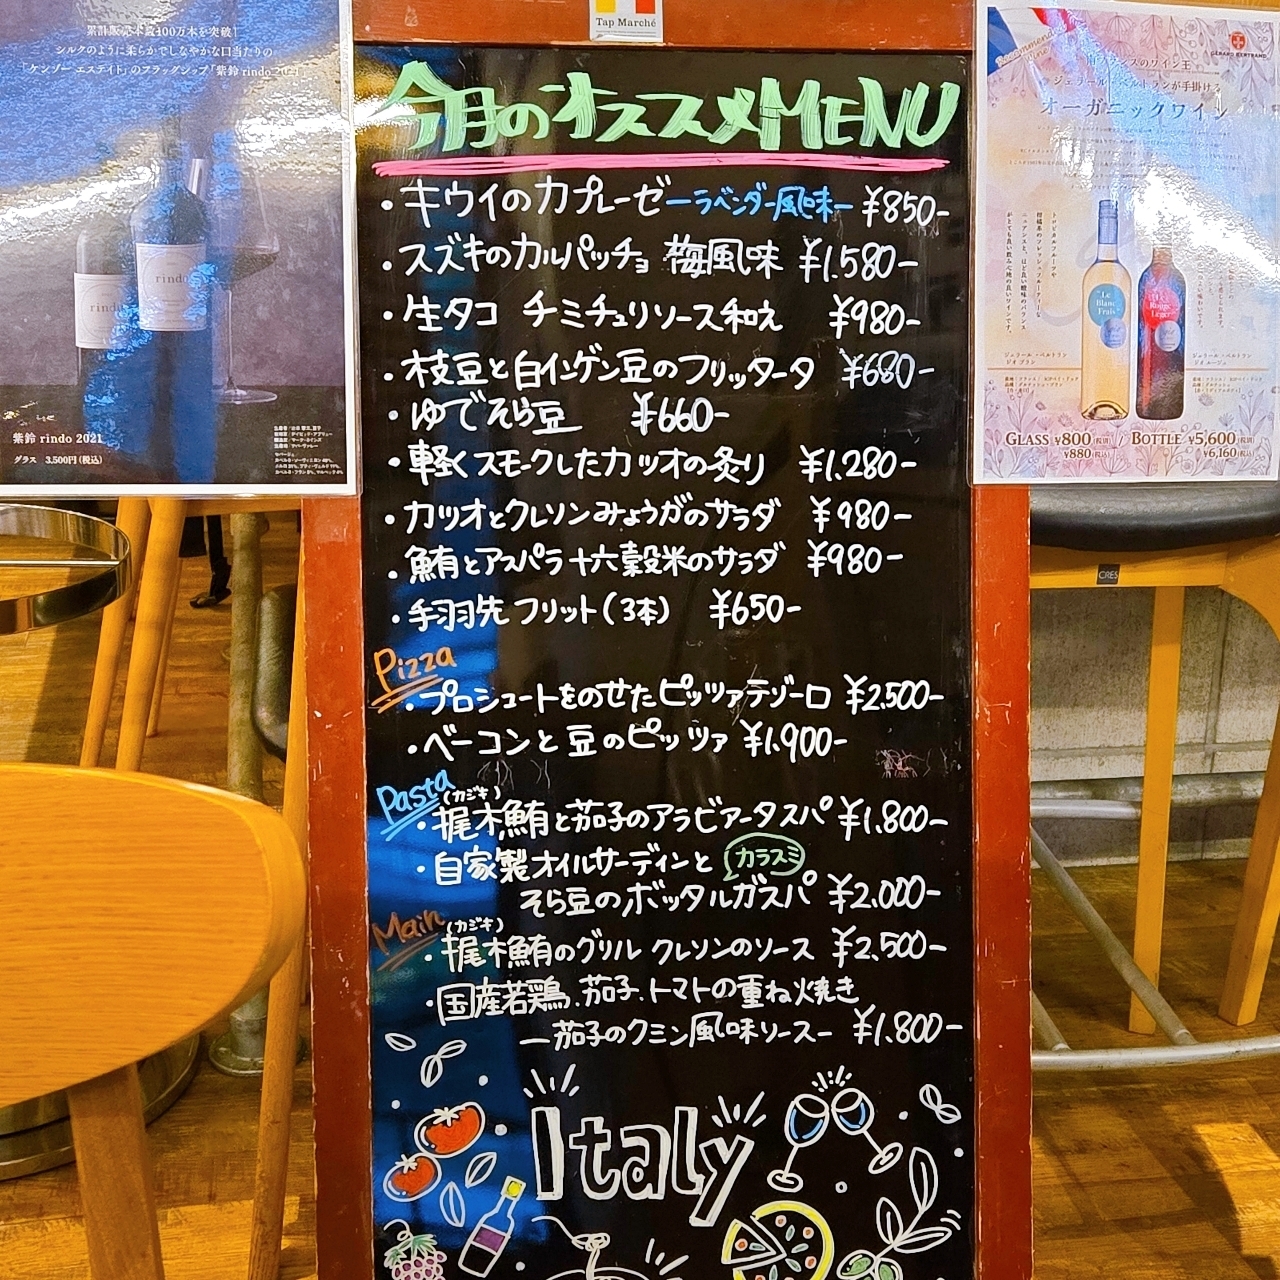 Tap Marché
今月のオススメMENU
・キウイのカプレーゼーラベンダー風味ー ¥850-
・スズキのカルパッチョ 梅風味 ¥1.580-
・生タコ チミチュリソース和え ¥980-
・枝豆と白インゲン豆のフリッタータ ¥680-
・ゆでそら豆 ¥660-
・軽くスモークしたカツオの炙り ¥1.280-
・カツオとクレソンみょうがのサラダ ¥980-
・鮪とアスパラ十六穀米のサラダ ¥980-
・手羽先フリット(3本) ¥650-
Pizza
・プロシュートをのせたピッツァテゾーロ ¥2.500-
・ベーコンと豆のピッツァ ¥1.900-
Pasta
(カジキ)
・梶木鮪と茄子のアラビアータスパ ¥1.800-
・自家製オイルサーディンと カラスミ
そら豆のボッタルガスパ ¥2.000-
Main
(カジキ)
・梶木鮪のグリル クレソンのソース ¥2.500-
・国産若鶏、茄子、トマトの重ね焼き
ー茄子のクミン風味ソースー ¥1.800-
Italy
累計販売本数100万本を突破！
シルクのように柔らかでしなやかな口当たりの
「ケンゾー エステイト」のフラッグシップ「紫鈴 rindo 2021」
rindo
rindo
紫鈴 rindo 2021
グラス 3,500円(税込)
GÉRARD BERTRAND
南フランスのワイン王
ジェラール・ベルトランが手掛ける
オーガニックワイン
Le Blanc Frais
Le Rouge Léger
GLASS ¥800(税別) / BOTTLE ¥5,600(税別)
¥880(税込) ¥6,160(税込)
CRES